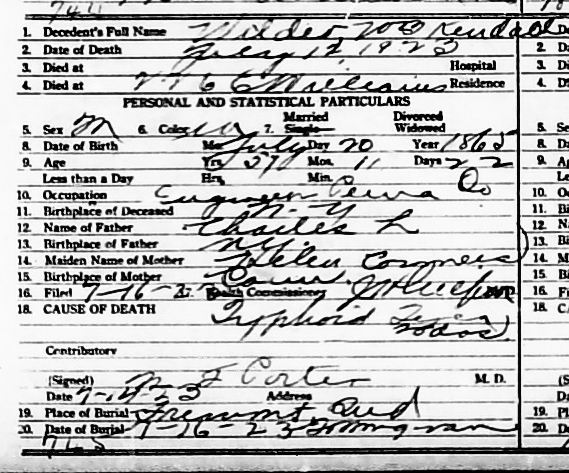 744
1. Decedent's Full Name Wilder Kendall
2. Date of Death July 12 1923
3. Died at Hospital
4. Died at 276 E Williams Residence
PERSONAL AND STATISTICAL PARTICULARS
Married Divorced
5. Sex M 6. Color W 7. Single Widowed
8. Date of Birth Mo July Day 20 Year 1865
9. Age Yrs. 57 Mos. 11 Days 22
Less than a Day Hrs. Min.
10. Occupation Engineer Co
11. Birthplace of Deceased N.Y
12. Name of Father Charles L
13. Birthplace of Father N.Y.
14. Maiden Name of Mother Helen
15. Birthplace of Mother
16. Filed 7-16-23 17. Health Commissioner
18. CAUSE OF DEATH
Typhoid Fever
Contributory
(Signed) F Porter M. D.
Date 7-14-23 Address
19. Place of Burial Fremont Ind
20. Date of Burial 7-16-23
745